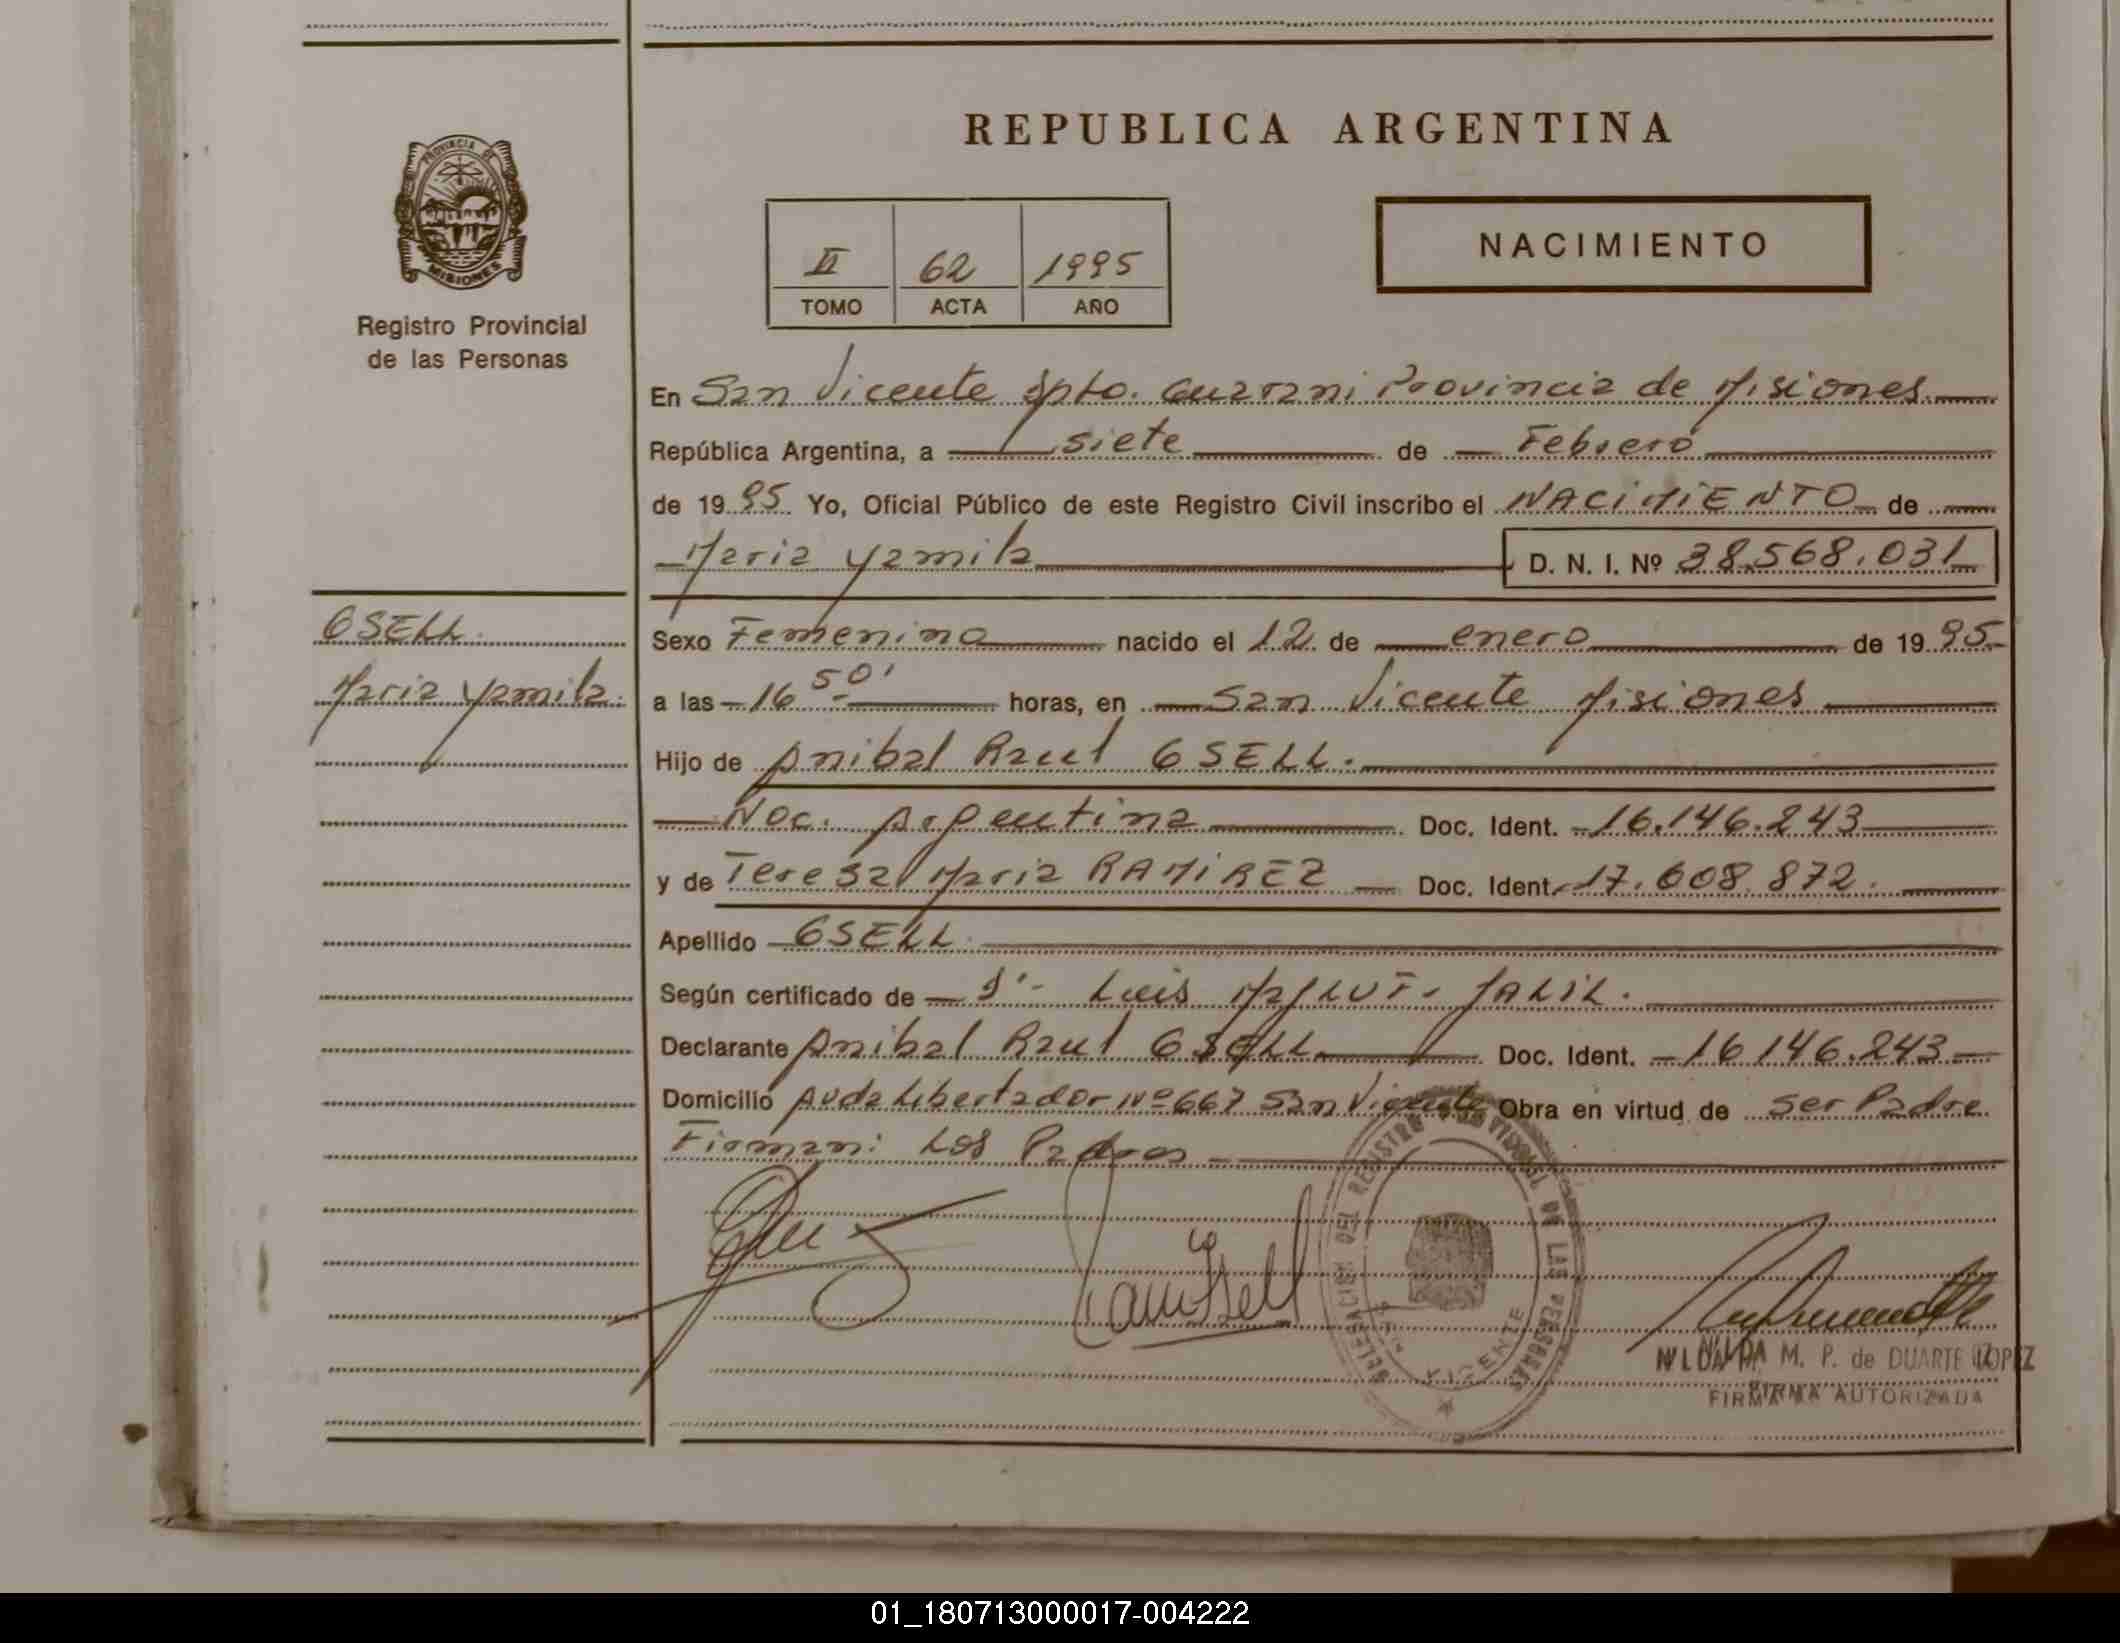 REPUBLICA ARGENTINA
PROVINCIA DE
MISIONES
Registro Provincial
de las Personas
II 62 1995
TOMO ACTA AÑO
NACIMIENTO
En San Vicente Dpto. Guarani Provincia de Misiones
República Argentina, a siete de Febrero
de 1995 Yo, Oficial Público de este Registro Civil inscribo el NACIMIENTO de
Maria Yamila D. N. I. Nº 38.568.031
GSELL
Maria Yamila.
Sexo Femenino nacido el 12 de enero de 1995
a las 16 50' horas, en San Vicente Misiones
Hijo de Anibal Raul GSELL.
Nac. Argentina Doc. Ident. 16.146.243
y de Teresa Maria RAMIREZ Doc. Ident. 17.608.872.
Apellido GSELL.
Según certificado de Luis JALIL.
Declarante Anibal Raul GSELL Doc. Ident. 16146.243
Domicilio Avda Libertador Nº 667 San Vicente Obra en virtud de ser Padre
Firman: Los Padres
DELEGACION DEL REGISTRO PROVINCIAL DE LAS PERSONAS
VICENTE
NILDA M. P. de DUARTE LOPEZ
FIRMA AUTORIZADA
01_180713000017-004222